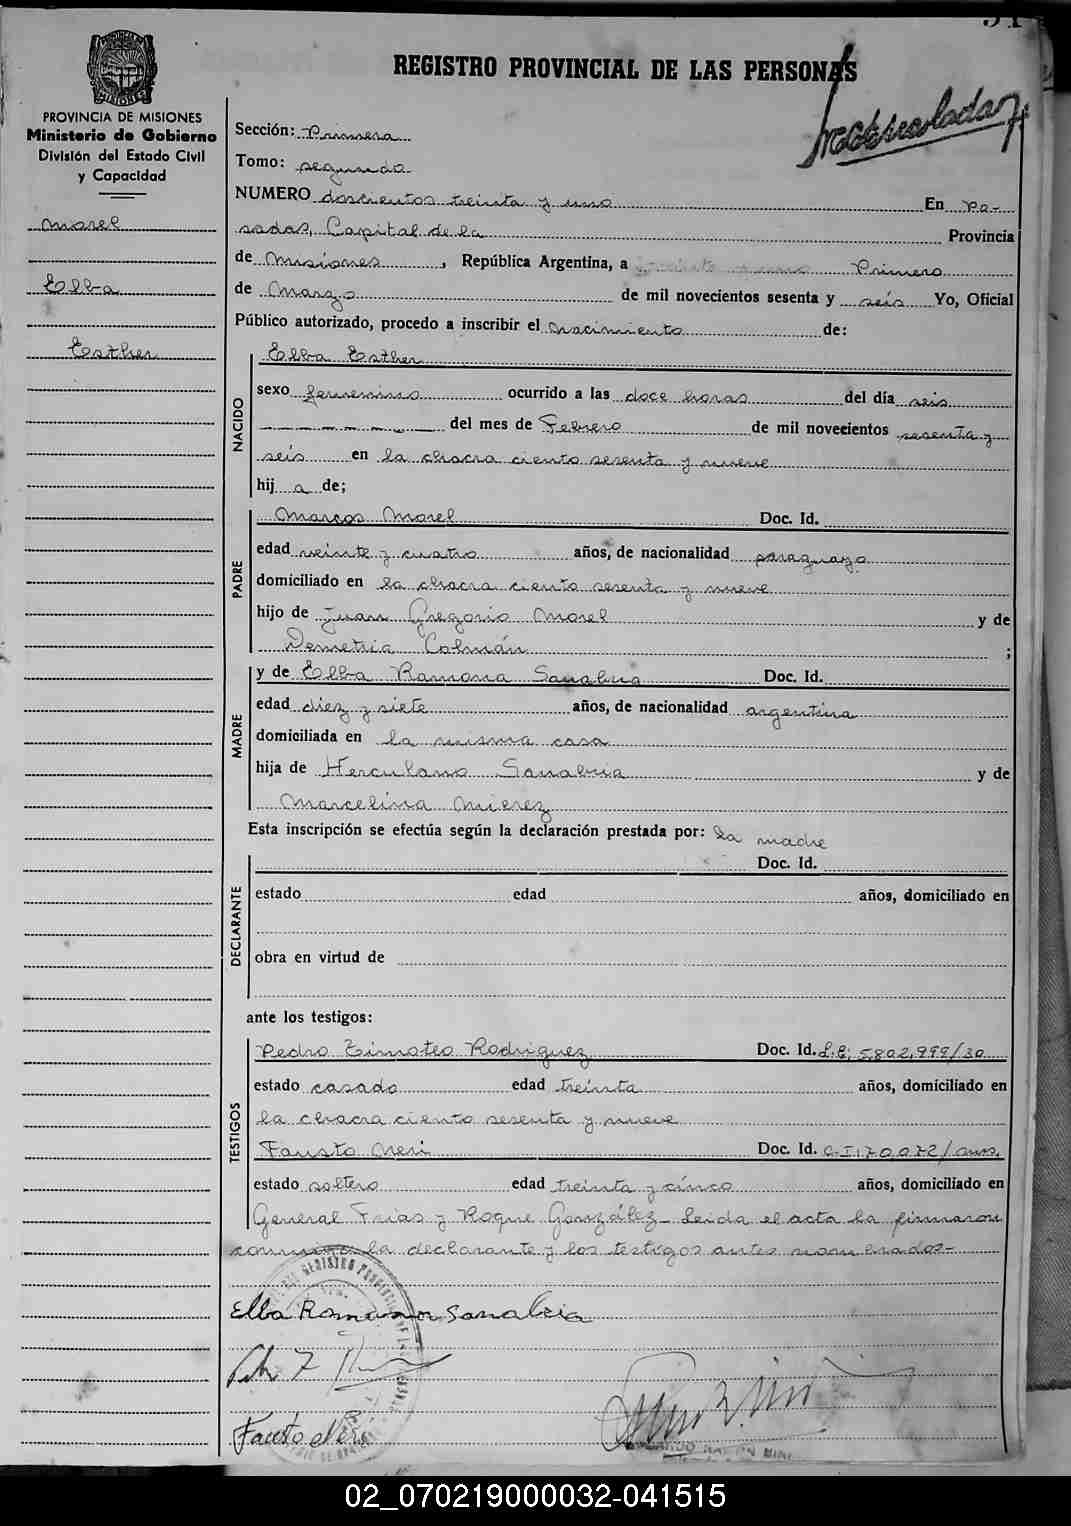 REGISTRO PROVINCIAL DE LAS PERSONAS
Matriculada
PROVINCIA DE MISIONES
Ministerio de Gobierno
División del Estado Civil
y Capacidad
Morel
Elba
Esther
Sección: Primera
Tomo: segundo
NUMERO doscientos treinta y uno En Po-
sadas, Capital de la Provincia
de Misiones, República Argentina, a Primero
de Marzo de mil novecientos sesenta y seis Yo, Oficial
Público autorizado, procedo a inscribir el nacimiento de:
NACIDO
Elba Esther
sexo femenino ocurrido a las doce horas del día seis
del mes de Febrero de mil novecientos sesenta y
seis en la chacra ciento sesenta y nueve
hij a de;
PADRE
Marcos Morel Doc. Id.
edad veinte y cuatro años, de nacionalidad paraguayo
domiciliado en la chacra ciento sesenta y nueve
hijo de Juan Gregorio Morel y de
Demetria Colmán ;
MADRE
y de Elba Ramona Sanabria Doc. Id.
edad diez y siete años, de nacionalidad argentina
domiciliada en la misma casa
hija de Herculano Sanabria y de
Marcelina Mierez
Esta inscripción se efectúa según la declaración prestada por: la madre
DECLARANTE
Doc. Id.
estado edad años, domiciliado en
obra en virtud de
ante los testigos:
TESTIGOS
Pedro Timoteo Rodriguez Doc. Id. L.E; 5,802,999/30
estado casado edad treinta años, domiciliado en
la chacra ciento sesenta y nueve
Fausto Neri Doc. Id. C-I; 70,072/
estado soltero edad treinta y cinco años, domiciliado en
General Frias y Roque González - Leida el acta la firmaron
conmigo la declarante y los testigos antes nombrados-
Elba Romana Sanabria
Fausto Neri
02_070219000032-041515